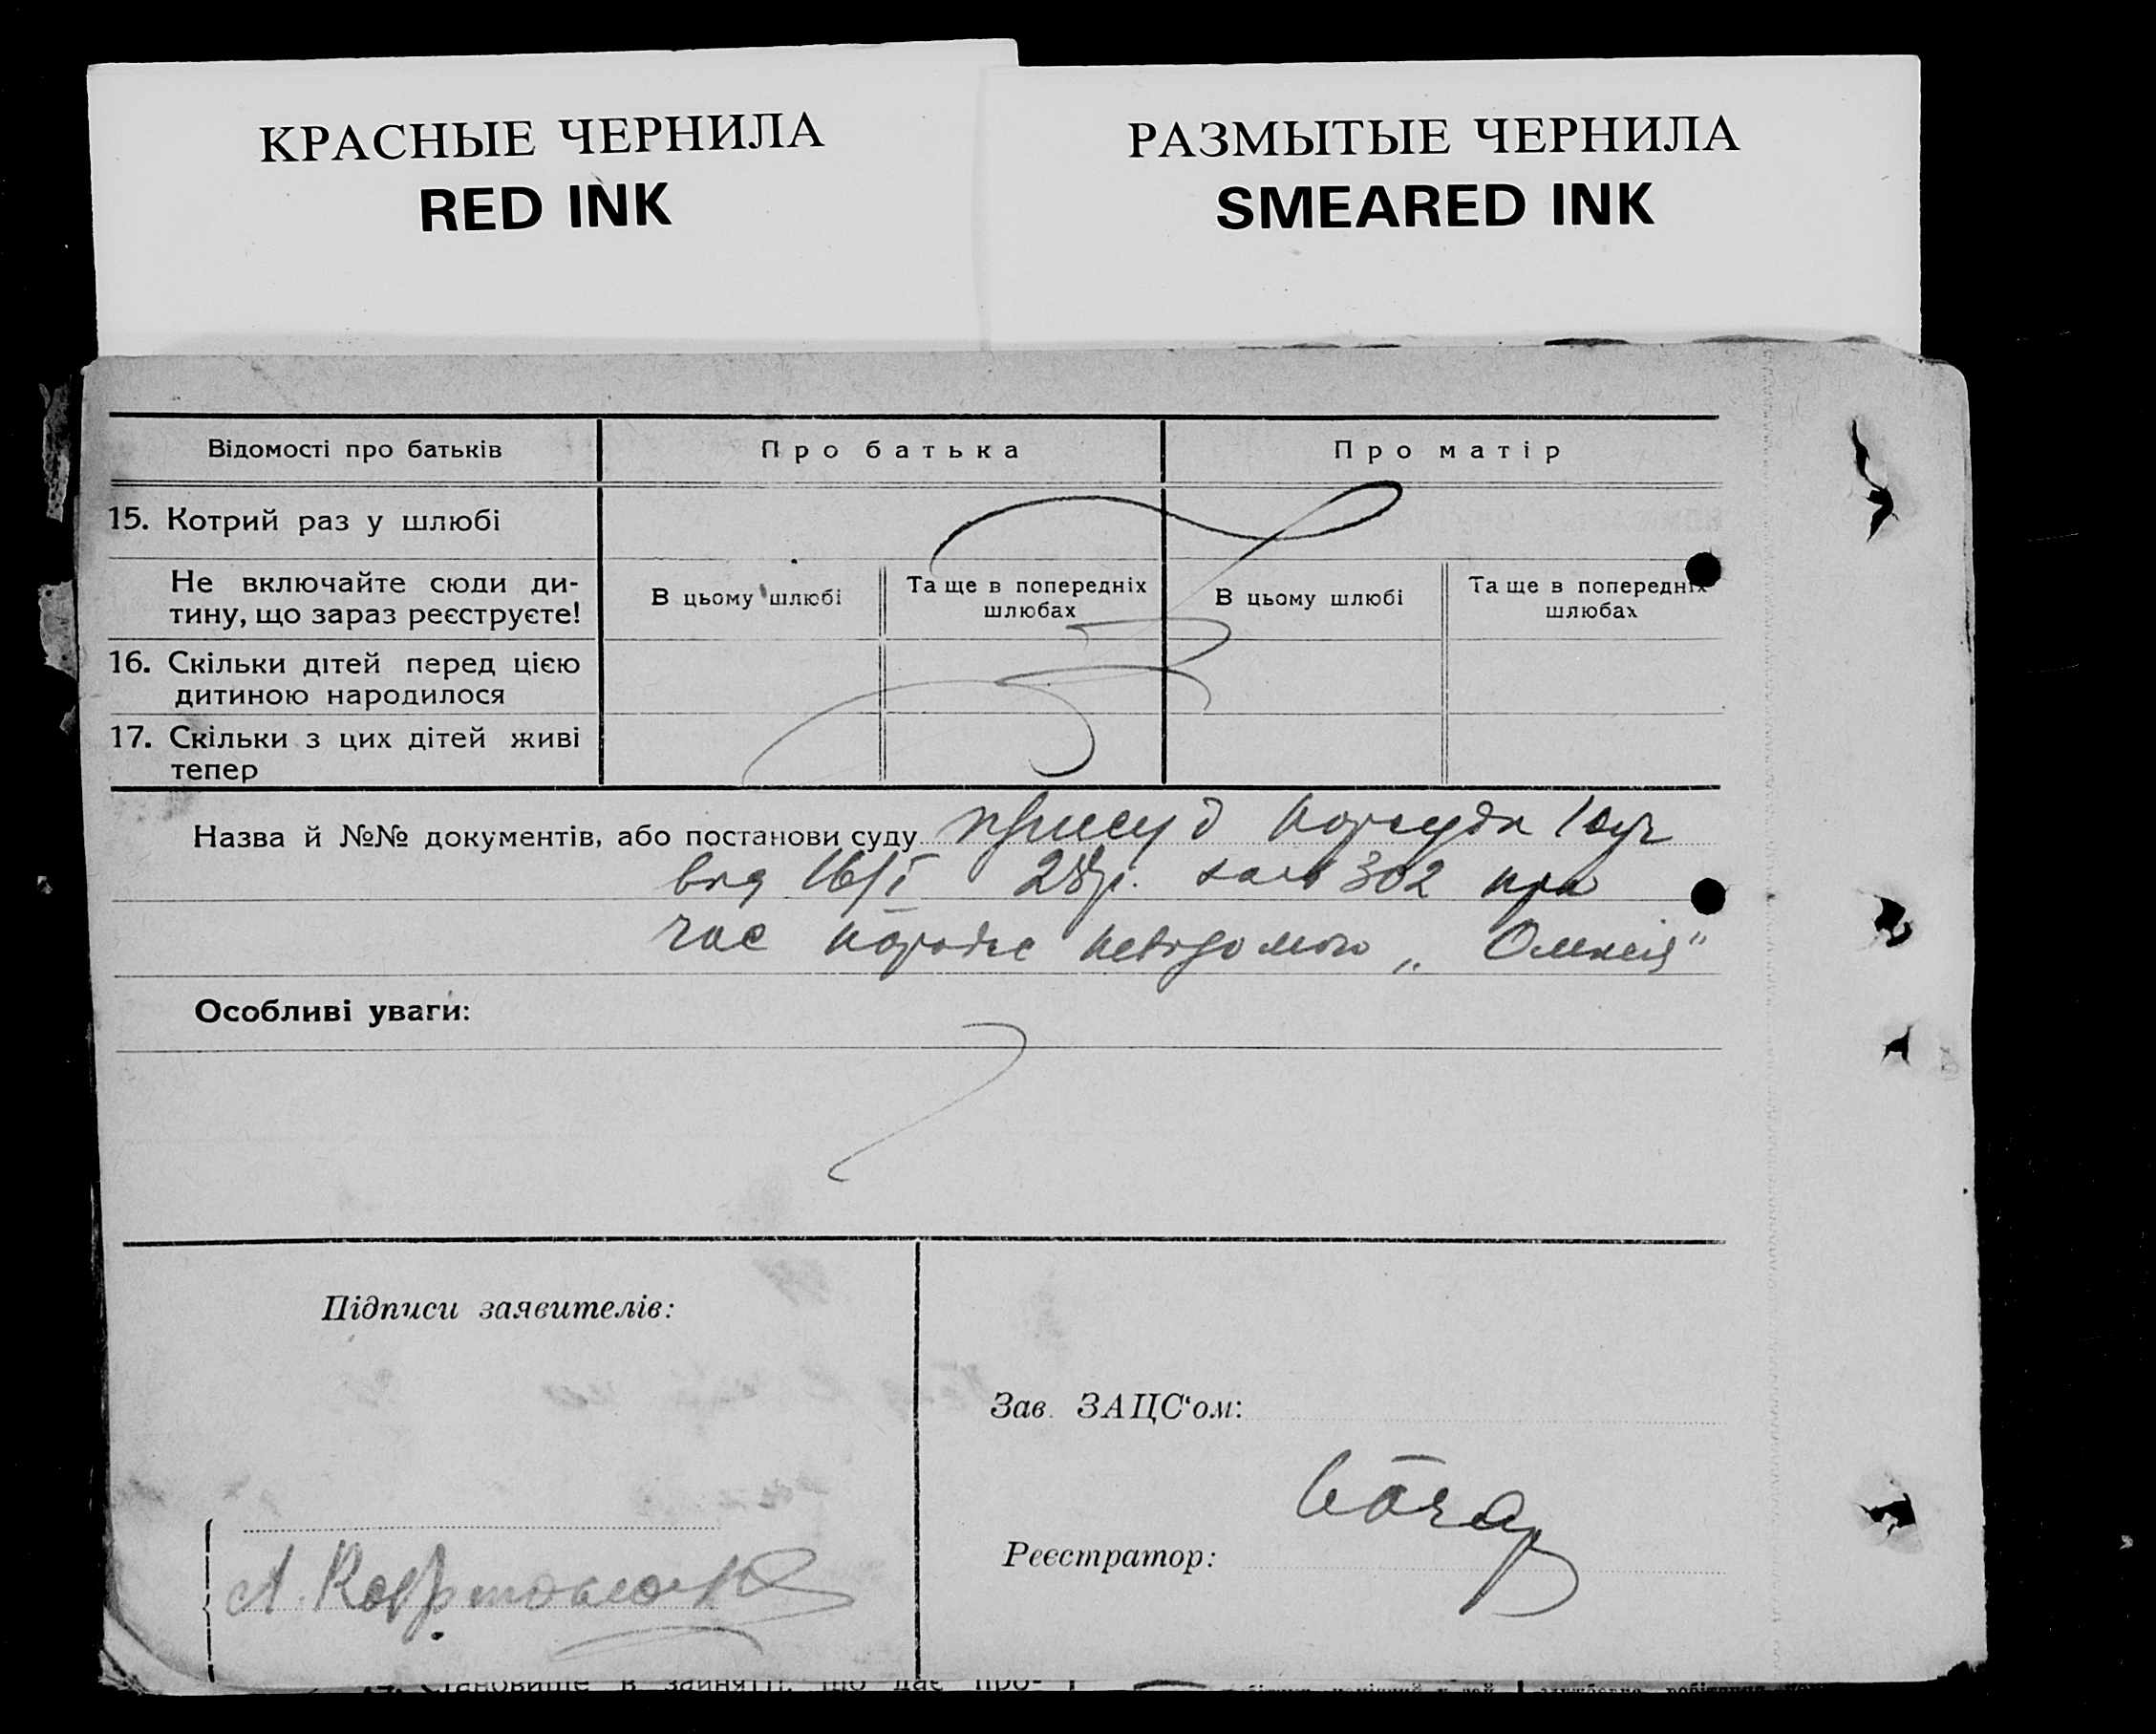 КРАСНЫЕ ЧЕРНИЛА
RED INK
РАЗМЫТЫЕ ЧЕРНИЛА
SMEARED INK
Відомості про батьків
Про батька
Про матір
15. Котрий раз у шлюбі
Не включайте сюди ди-
тину, що зараз реєструєте!
В цьому шлюбі
Та ще в попередніх
шлюбах
В цьому шлюбі
Та ще в попередніх
шлюбах
16. Скільки дітей перед цією
дитиною народилося
17. Скільки з цих дітей живі
тепер
Назва й №№ документів, або постанови суду присуд
від 16/I 28р. 302 про
час невідомого „
Особливі уваги:
Підписи заявителів:
Зав. ЗАЦС‘ом:
Реєстратор:
А.
Становище в занятті, що дає про-